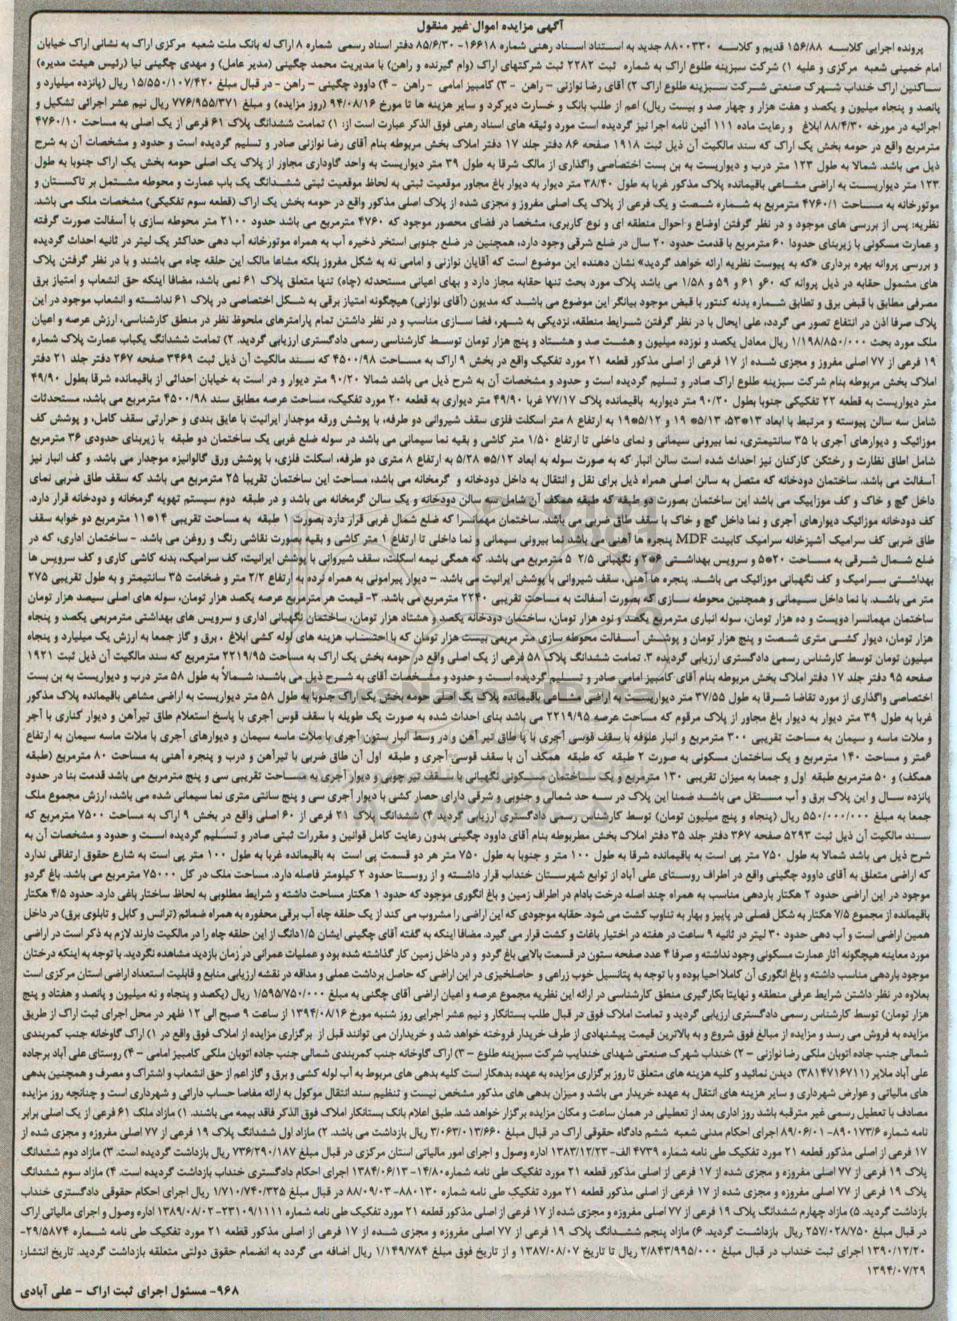 آگهی مزایده اموال غیر منقول
پرونده اجرایی کلاسه ۱۵۶/۸۸ قدیم و کلاسه ۸۸۰۰۳۳۰ جدید به استناد اسناد رهنی شماره ۱۶۶۱۸- ۸۵/۶/۳۰ دفتر اسناد رسمی شماره ۸ اراک له بانک ملت شعبه مرکزی اراک به نشانی اراک خیابان
امام خمینی شعبه مرکزی و علیه ۱) شرکت سبزینه طلوع اراک به شماره ثبت ۲۲۸۲ ثبت شرکتهای اراک (وام گیرنده و راهن) با مدیریت محمد چگینی (مدیر عامل) و مهدی چگینی نیا (رئیس هیئت مدیره)
ساکنین اراک خنداب شهرک صنعتی شرکت سبزینه طلوع اراک ۲) آقای رضا نوازنی – راهن - ۳) کامبیز امامی - راهن - ۴) داوود چگینی – راهن - در قبال مبلغ ۱۵/۵۵۰/۱۰۷/۴۲۰ ریال (پانزده میلیارد و
پانصد و پنجاه میلیون و یکصد و هفت هزار و چهار صد و بیست ریال) اعم از طلب بانک و خسارت دیرکرد و سایر هزینه ها تا مورخ ۹۴/۰۸/۱۶ (روز مزایده) و مبلغ ۷۷۶/۹۵۵/۳۷۱ ریال نیم عشر اجرائی تشکیل و
اجرائیه در مورخه ۸۸/۴/۳۰ ابلاغ و رعایت ماده ۱۱۱ آئین نامه اجرا نیز گردیده است مورد وثیقه های اسناد رهنی فوق الذکر عبارت است از: ۱) تمامت ششدانگ پلاک ۶۱ فرعی از یک اصلی به مساحت ۴۷۶۰/۱۰
مترمربع واقع در حومه بخش یک اراک که سند مالکیت آن ذیل ثبت ۱۹۱۸ صفحه ۸۶ دفتر جلد ۱۷ دفتر املاک بخش مربوطه بنام آقای رضا نوازنی صادر و تسلیم گردیده است و حدود و مشخصات آن به شرح
ذیل می باشد. شمالا به طول ۱۲۳ متر درب و دیواریست به بن بست اختصاصی واگذاری از مالک شرقا به طول ۳۹ متر دیواریست به واحد گاوداری مجاور از پلاک یک اصلی حومه بخش یک اراک جنوبا به طول
۱۲۳ متر دیواریست به اراضی مشاعی باقیمانده پلاک مذکور غربا به طول ۳۸/۴۰ متر دیوار به دیوار باغ مجاور موقعیت ثبتی به لحاظ موقعیت ثبتی ششدانگ یک باب عمارت و محوطه مشتمل بر تاکستان و
موتورخانه به مساحت ۴۷۶۰/۱ مترمربع به شماره شصت و یک فرعی از پلاک یک اصلی مفروز و مجزی شده از پلاک اصلی مذکور واقع در حومه بخش یک اراک (قطعه سوم تفکیکی) مشخصات ملک می باشد.
نظریه: پس از بررسی های موجود و در نظر گرفتن اوضاع و احوال منطقه ای و نوع کاربری، مشخصا در فضای محصور موجود که ۴۷۶۰ مترمربع می باشد حدود ۲۱۰۰ متر محوطه سازی با آسفالت صورت گرفته
و عمارت مسکونی با زیربنای حدودا ۶۰ مترمربع با قدمت حدود ۲۰ سال در ضلع شرقی وجود دارد، همچنین در ضلع جنوبی استخر ذخیره آب به همراه موتورخانه آب دهی حداکثر یک لیتر در ثانیه احداث گردیده
و بررسی پروانه بهره برداری «که به پیوست نظریه ارائه خواهد گردید» نشان دهنده این موضوع است که آقایان نوازنی و امامی نه به شکل مفروز بلکه مشاعا مالک این حلقه چاه می باشند و با در نظر گرفتن پلاک
های مشمول حقابه در ذیل پروانه که ۶۰و ۶۱ و ۵۹ و ۱/۵۸ می باشد پلاک مورد بحث تنها حقابه مجاز دارد و بهای اعیانی مستحدثه (چاه) تنها متعلق پلاک ۶۱ نمی باشد، مضافا اینکه حق انشعاب و امتیاز برق
مصرفی مطابق با قبض برق و تطابق شماره بدنه کنتور با قبض موجود بیانگر این موضوع می باشد که مدیون (آقای نوازنی) هیچگونه امتیاز برقی به شکل اختصاصی در پلاک ۶۱ نداشته و انشعاب موجود در این
پلاک صرفا اذن در انتفاع تصور می گردد، علی ایحال با در نظر گرفتن شرایط منطقه، نزدیکی به شهر، فضا سازی مناسب و در نظر داشتن تمام پارامترهای ملحوظ نظر در منطق کارشناسی، ارزش عرصه و اعیان
ملک مورد بحث ۱/۱۹۸/۸۵۰/۰۰۰ ریال معادل یکصد و نوزده میلیون و هشت صد و هشتاد و پنج هزار تومان توسط کارشناسی رسمی دادگستری ارزیابی گردید. ۲) تمامت ششدانگ یکباب عمارت پلاک شماره
۱۹ فرعی از ۷۷ اصلی مفروز و مجزی شده از ۱۷ فرعی از اصلی مذکور قطعه ۲۱ مورد تفکیک واقع در بخش ۹ اراک به مساحت ۴۵۰۰/۹۸ که سند مالکیت آن ذیل ثبت ۳۴۶۹ صفحه ۲۶۷ دفتر جلد ۲۱ دفتر
املاک بخش مربوطه بنام شرکت سبزینه طلوع اراک صادر و تسلیم گردیده است و حدود و مشخصات آن به شرح ذیل می باشد شمالا ۹۰/۲۰ متر دیوار و در است به خیابان احداثی از باقیمانده شرقا بطول ۴۹/۹۰
متر دیواریست به قطعه ۲۲ تفکیکی جنوبا بطول ۹۰/۲۰ متر دیواربه باقیمانده پلاک ۷۷/۱۷ غربا ۴۹/۹۰ متر دیواری به قطعه ۲۰ مورد تفکیک، مساحت عرصه مطابق سند ۴۵۰۰/۹۸ مترمربع می باشد، مستحدثات
شامل سه سالن پیوسته و مرتبط با ابعاد ۱۲*۵۳، ۵/۱۳* ۱۹ و ۵/۱۲*۱۹ به ارتفاع ۸ متر اسکلت فلزی سقف شیروانی دو طرفه، با پوشش ورقه موجدار ایرانیت با عایق بندی و حرارتی سقف کامل، و پوشش کف
موزائیک و دیوارهای آجری با ۳۵ سانتیمتری، نما بیرونی سیمانی و نمای داخلی تا ارتفاع ۱/۵۰ متر کاشی و بقیه نما سیمانی می باشد در سوله ضلع غربی یک ساختمان دو طبقه با زیربنای حدودی ۳۶ مترمربع
شامل اطاق نظارت و رختکن کارکنان نیز احداث شده است سالن انبار که به صورت سوله به ابعاد ۵/۱۲* ۵/۲۸ به ارتفاع ۸ متری دو طرفه، اسکلت فلزی، با پوشش ورق گالوانیزه موجدار می باشد. و کف انبار نیز
آسفالت می باشد. ساختمان دودخانه که متصل به سالن اصلی همراه ذیل برای نقل و انتقال به داخل دودخانه و گرمخانه می باشد، مساحت این ساختمان تقریبا ۲۵ مترمربع می باشد که سقف طاق ضربی نمای
داخل گچ و خاک و کف موزاییک می باشد این ساختمان بصورت دو طبقه که طبقه همکف آن شامل سه سالن دودخانه و یک سالن گرمخانه می باشد و در طبقه دوم سیستم تهویه گرمخانه و دودخانه قرار دارد.
کف دودخانه موزائیک دیوارهای آجری و نما داخل گچ و خاک با سقف طاق ضربی می باشد. ساختمان مهمانسرا که ضلع شمال غربی قرار دارد بصورت ۱ طبقه به مساحت تقریبی ۱۴*۱۱ مترمربع دو خوابه سقف
طاق ضربی کف سرامیک آشپزخانه سرامیک کابینت MDF پنجره ها آهنی می باشد نما بیرونی سیمانی و نما داخلی تا ارتفاع ۱ متر کاشی و بقیه بصورت نقاشی رنگ و روغن می باشد. - ساختمان اداری، که در
ضلع شمال شرقی به مساحت ۲۰*۵ و سرویس بهداشتی ۶*۲ و نگهبانی ۲/۵ ۵ مترمربع می باشد. که همگی نیمه اسکلت، سقف شیروانی با پوشش ایرانیت، کف سرامیک، بدنه کاشی کاری و کف سرویس ها
بهداشتی سرامیک و کف نگهبانی موزائیک می باشد. پنجره ها آهنی، سقف شیروانی با پوشش ایرانیت می باشد. – دیوار پیرامونی به همراه نرده به ارتفاع ۲/۲ متر و ضخامت ۳۵ سانتیمتر و به طول تقریبی ۲۷۵
متر می باشد. با نما داخل سیمانی و همچنین محوطه سازی که بصورت آسفالت به مساحت تقریبی ۲۲۴۰ مترمربع می باشد. ۳- قیمت هر مترمربع عرصه یکصد هزار تومان، سوله های اصلی سیصد هزار تومان
ساختمان مهمانسرا دویست و ده هزار تومان، سوله انباری مترمربع یکصد و نود هزار تومان، ساختمان دودخانه یکصد و هشتاد هزار تومان، ساختمان نگهبانی اداری و سرویس های بهداشتی مترمربعی یکصد و پنجاه
هزار تومان، دیوار کشی متری شصت و پنج هزار تومان و پوشش آسفالت محوطه سازی متر مربعی بیست هزار تومان که با احتساب هزینه های لوله کشی ابلاغ ، برق و گاز جمعا به ارزش یک میلیارد و پنجاه
میلیون تومان توسط کارشناس رسمی دادگستری ارزیابی گردیده ۳. تمامت ششدانگ پلاک ۵۸ فرعی از یک اصلی واقع در حومه بخش یک اراک به مساحت ۲۲۱۹/۹۵ مترمربع که سند مالکیت آن ذیل ثبت ۱۹۲۱
صفحه ۹۵ دفتر جلد ۱۷ دفتر املاک بخش مربوطه بنام آقای کامبیز امامی صادر و تسلیم گردیده است و حدود و مشخصات آقای به شرح ذیل می باشد: شمالا به طول ۵۸ متر درب و دیواریست به بن بست
اختصاصی واگذاری از مورد تقاضا شرقا به طول ۳۷/۵۵ متر دیواریست به اراضی مشاعی باقیمانده پلاک یک اصلی حومه بخش یک اراک جنوبا به طول ۵۸ متر دیواریست به اراضی مشاعی باقیمانده پلاک مذکور
غربا به طول ۳۹ متر دیوار به دیوار باغ مجاور از پلاک مرقوم که مساحت عرصه ۲۲۱۹/۹۵ می باشد بنای احداث شده به صورت یک طویله با سقف قوس آجری با پاسخ استعلام طاق تیرآهن و دیوار کناری با آجر
و ملات ماسه و سیمان به مساحت تقریبی ۳۰۰ مترمربع و انبار علوفه با سقف قوسی آجری با پا طاق تیر آهن و در وسط انبار ستون آجری با ملات ماسه سیمان و دیوارهای آجری با ملات ماسه سیمان به ارتفاع
۶متر و مساحت ۱۴۰ مترمربع و یک ساختمان مسکونی به صورت ۲ طبقه که طبقه همکف آن با سقف قوسی آجری و طبقه اول آن طاق ضربی با تیرآهن و درب و پنجره آهنی به مساحت ۸۰ مترمربع (طبقه
همکف) و ۵۰ مترمربع طبقه اول و جمعا به میزان تقریبی ۱۳۰ مترمربع و یک ساختمان مسکونی نگهبانی با سقف تیر چوبی و دیوار آجری به مساحت تقریبی سی و پنج مترمربع می باشد قدمت بنا در حدود
پانزده سال و این پلاک برق و آب مستقل می باشد ضمنا این پلاک در سه حد شمالی و جنوبی و شرقی دارای حصار کشی با دیوار آجری سی و پنج سانتی متری نما سیمانی شده می باشد، ارزش مجموع ملک
جمعا به مبلغ ۵۵۰/۰۰۰/۰۰۰ ریال (پنجاه و پنج میلیون تومان) توسط کارشناس رسمی دادگستری ارزیابی گردید ۴) ششدانگ پلاک ۲۱ فرعی از ۶۰ اصلی واقع در بخش ۹ اراک به مساحت ۷۵۰۰ مترمربع که
سند مالکیت آن ذیل ثبت ۵۲۹۳ صفحه ۳۶۷ دفتر جلد ۳۵ دفتر املاک بخش مطربوطه بنام آقای داوود چگینی بدون رعایت کامل قوانین و مقررات ثبتی صادر و تسلیم گردیده است و حدود و مشخصات آن به
شرح ذیل می باشد شمالا به طول ۷۵۰ متر پی است به باقیمانده شرقا به طول ۱۰۰ متر و جنوبا به طول ۷۵۰ متر هر دو قسمت پی است به باقیمانده غربا به طول ۱۰۰ متر پی است به شارع حقوق ارتفاقی ندارد
که اراضی متعلق به آقای داوود چگینی واقع در اطراف روستای علی آباد از توابع شهرستان خنداب قرار داشته و از روستا حدود ۲ کیلومتر فاصله دارد. مساحت ملک در کل ۷۵۰۰۰ مترمربع می باشد. باغ گردو
موجود در این اراضی حدود ۲ هکتار باردهی مناسب به همراه چند اصله درخت بادام در اطراف زمین و باغ انگوری موجود که حدود ۱ هکتار مساحت داشته و شرایط مطلوبی به لحاظ ساختار باغی دارد. حدود ۴/۵ هکتار
باقیمانده از مجموع ۷/۵ هکتار به شکل فصلی در پاییز و بهار به تناوب کشت می شود. حقابه موجودی که این اراضی را مشروب می کند از یک حلقه چاه آب برقی محفوره به همراه ضمائم (ترانس و کابل و تابلوی برق) در داخل
همین اراضی است و آب دهی حدود ۳۰ لیتر در ثانیه ۹ ساعت در هفته در اختیار باغات و کشت قرار می گیرد. مضافا اینکه به گفته آقای چگینی ایشان ۱/۵دانگ از این حلقه چاه را در مالکیت دارند لازم به ذکر است در اراضی
مورد معاینه هیچگونه آثار عمارت مسکونی وجود نداشته و صرفا ۴ عدد صفحه ستون در قسمت بالایی باغ گردو و در داخل زمین کار گذاشته شده بود و عملیات عمرانی در زمان بازدید مشاهده نگردید. با توجه به اینکه درختان
موجود باردهی مناسب داشته و باغ انگوری آن کاملا احیا بوده و با توجه به پتانسیل خوب زراعی و حاصلخیزی در این اراضی که حاصل برداشت عملی و مداقه در نقشه ارزیابی منابع و قابلیت استعداد اراضی استان مرکزی است
بعلاوه در نظر داشتن شرایط عرفی منطقه و نهایتا بکارگیری منطق کارشناسی در ارائه این نظریه مجموع عرصه و اعیان اراضی آقای چگنی به مبلغ ۱/۵۹۵/۷۵۰/۰۰۰ ریال (یکصد و پنجاه و نه میلیون و پانصد و هفتاد و پنج
هزار تومان) توسط کارشناس رسمی دادگستری ارزیابی گردید و تمامت املاک فوق در قبال طلب بستانکار و نیم عشر اجرایی روز شنبه مورخ ۱۳۹۴/۰۸/۱۶ از ساعت ۹ صبح الی ۱۲ ظهر در محل اجرای ثبت اراک از طریق
مزایده به فروش می رسد و مزایده از مبالغ فوق شروع و به بالاترین قیمت پیشنهادی از طرف خریدار فروخته خواهد شد و خریداران می توانند قبل از برگزاری مزایده از املاک فوق واقع در ۱) اراک گاوخانه جنب کمربندی
شمالی جنب جاده اتوبان ملکی رضا نوازنی – ۲) خنداب شهرک صنعتی شهدای خنداب شرکت سبزینه طلوع – ۳) اراک گاوخانه جنب کمربندی شمالی جنب جاده اتوبان ملکی کامبیز امامی – ۴) روستای علی آباد برجاده
علی آباد ملایر (۳۸۱۴۷۱۶۷۱۱) دیدن نمائید و کلیه هزینه های متعلق تا روز برگزاری مزایده به عهده بدهکار است کلیه بدهی های مربوط به آب لوله کشی و برق و گاز اعم از حق انشعاب و اشتراک و مصرف و همچنین بدهی
های مالیاتی و عوارض شهرداری و سایر هزینه های انتقال به عهده خریدار می باشد و میزان بدهی های مذکور مشخص نیست و تنظیم سند انتقال موکول به ارائه مفاصا حساب دارائی و شهرداری است و چنانچه روز مزایده
مصادف با تعطیل رسمی غیر مترقبه باشد روز اداری بعد از تعطیلی در همان ساعت و مکان مزایده برگزار خواهد شد. طبق اعلام بانک بستانکار املاک فوق الذکر فاقد بیمه می باشند. ۱) مازاد ملک ۶۱ فرعی از یک اصلی برابر
نامه شماره ۸۹۰۱۷۳/۶- ۸۹/۰۶/۰۱ اجرای احکام مدنی شعبه ششم دادگاه حقوقی اراک در قبال مبلغ ۳/۰۶۳/۰۱۳/۶۶۰ ریال بازداشت می باشد. ۲) مازاد اول ششدانگ پلاک ۱۹ فرعی از ۷۷ اصلی مفروزه و مجزی شده از
۱۷ فرعی از اصلی مذکور قطعه ۲۱ مورد تفکیک طی نامه شماره ۴۷۳۹ الف- ۱۳۸۳/۱۲/۲۳ اداره وصول و اجرای امور مالیاتی استان مرکزی در قبال مبلغ ۷۳۶/۲۹۰/۱۸۷ ریال بازداشت گردیده است. ۳) مازاد دوم ششدانگ
پلاک ۱۹ فرعی از ۷۷ اصلی مفروزه و مجزی شده از ۱۷ فرعی از اصلی مذکور قطعه ۲۱ مورد تفکیک طی نامه شماره۱۴/۸۰- ۱۳۸۴/۰۶/۱۳ اجرای احکام دادگستری خنداب بازداشت گردیده است. ۴) مازاد سوم ششدانگ
پلاک ۱۹ فرعی از ۷۷ اصلی مفروزه و مجزی شده از ۱۷ فرعی از اصلی مذکور قطعه ۲۱ مورد تفکیک طی نامه شماره ۸۸۰۱۳۰- ۸۸/۰۹/۰۳ در قبال مبلغ ۱/۷۱۰/۷۴۰/۳۲۵ ریال اجرای احکام حقوقی دادگستری خنداب
بازداشت گردید. ۵) مازاد چهارم ششدانگ پلاک ۱۹ فرعی از ۷۷ اصلی مفروزه و مجزی شده از ۱۷ فرعی از اصلی مذکور قطعه ۲۱ مورد تفکیک طی نامه شماره ۲۳۱۰۹/۱۱۱۱- ۱۳۸۹/۰۸/۰۲ اداره وصول و اجرای مالیاتی اراک
در قبال مبلغ ۲۵۷/۰۲۸/۷۵۰ ریال بازداشت گردید. ۶) مازاد پنجم ششدانگ پلاک ۱۹ فرعی از ۷۷ اصلی مفروزه و مجزی شده از ۱۷ فرعی از اصلی مذکور قطعه ۲۱ مورد تفکیک طی نامه شماره ۲۹/۵۸۷۴-
۱۳۹۰/۱۲/۲۰ اجرای ثبت خنداب در قبال مبلغ ۲/۸۴۳/۹۹۵/۰۰۰ ریال تا تاریخ ۱۳۸۷/۰۸/۰۷ و از تاریخ فوق مبلغ ۱/۱۴۹/۷۸۴ ریال اضافه می گردد به انضمام حقوق دولتی متعلقه بازداشت گردید. تاریخ انتشار:
۱۳۹۴/۰۷/۲۹
۹۶۸- مسئول اجرای ثبت اراک – علی آبادی